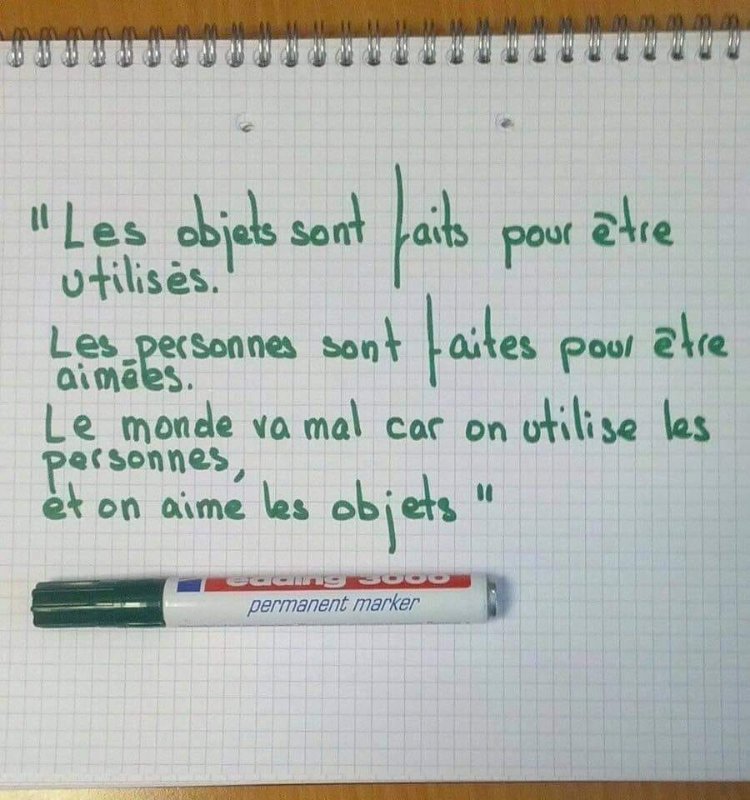 "Les objets sont faits pour être
utilisés.
Les personnes sont faites pour être
aimées.
Le monde va mal car on utilise les
personnes,
et on aime les objets"
edding 3000
permanent marker